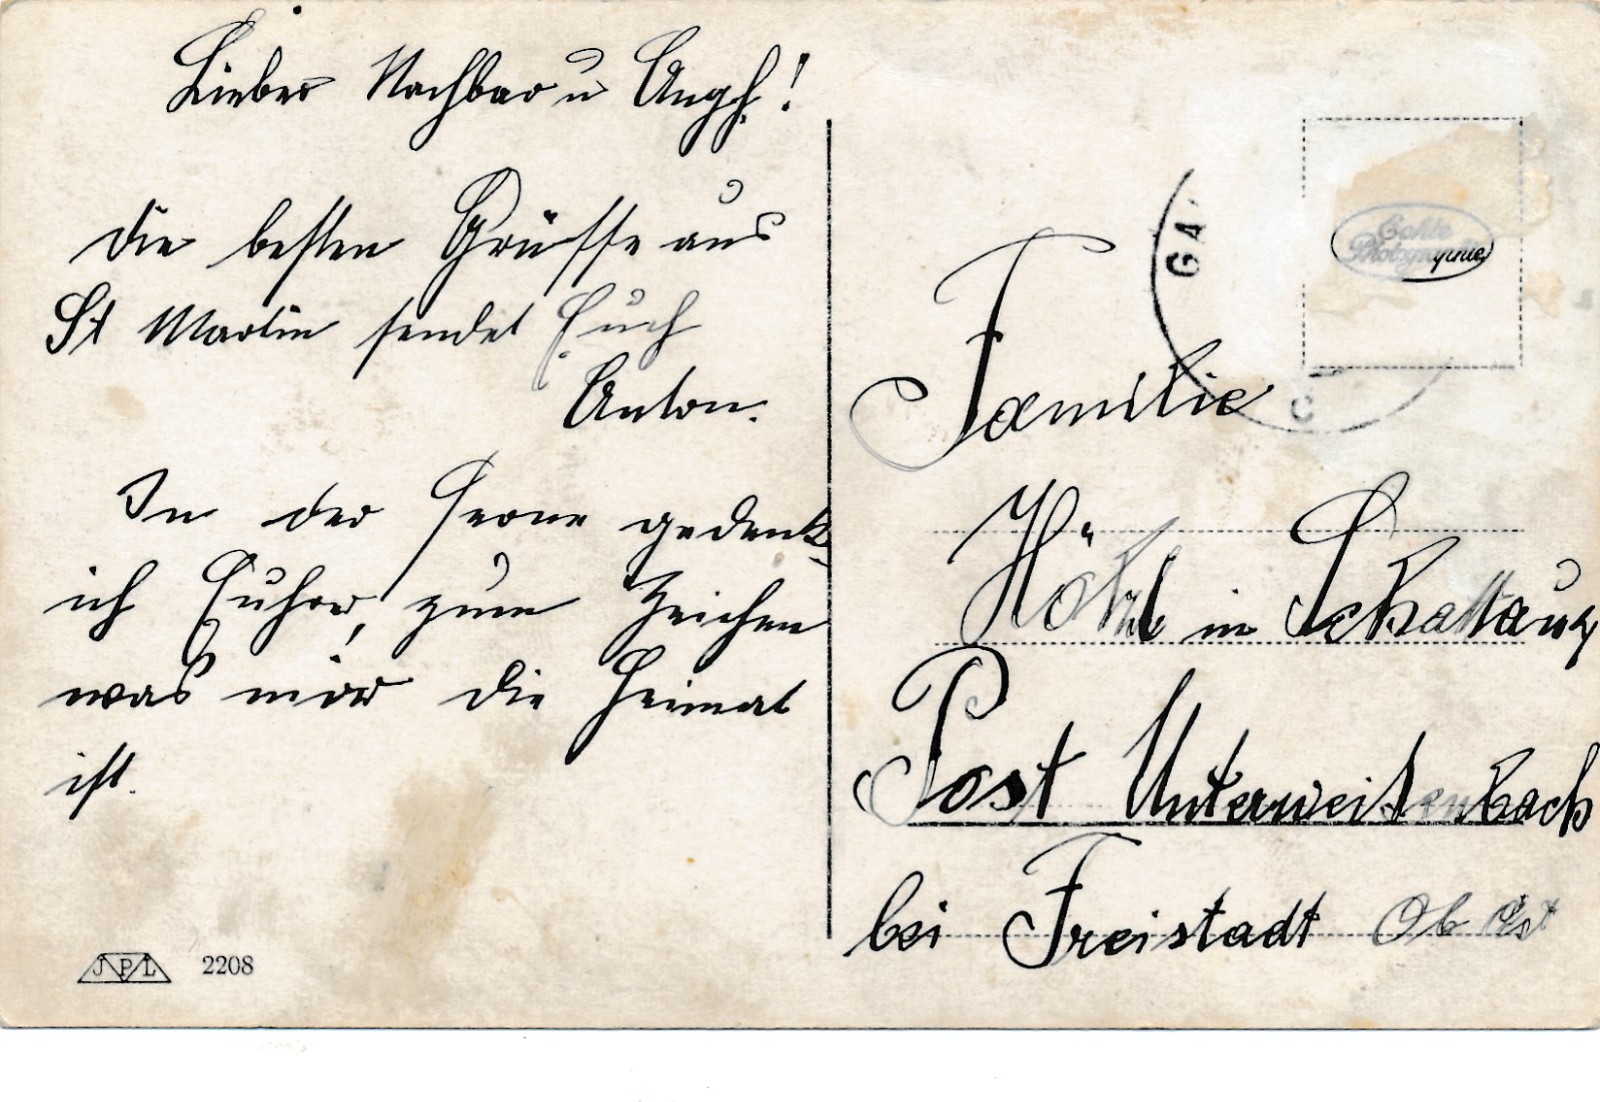 Lieber Nachbar u Angh.!
die besten Grüsse aus
St Martin sendet Euch
Anton.
In der Ferne gedenk
ich Euhrer, zum Zeichen
was mir die Heimat
ist.
JPL 2208
GA
Echte
Photographie
Familie
in Schattau
Post Unterweitenbach
bei Freistadt Ob Öst